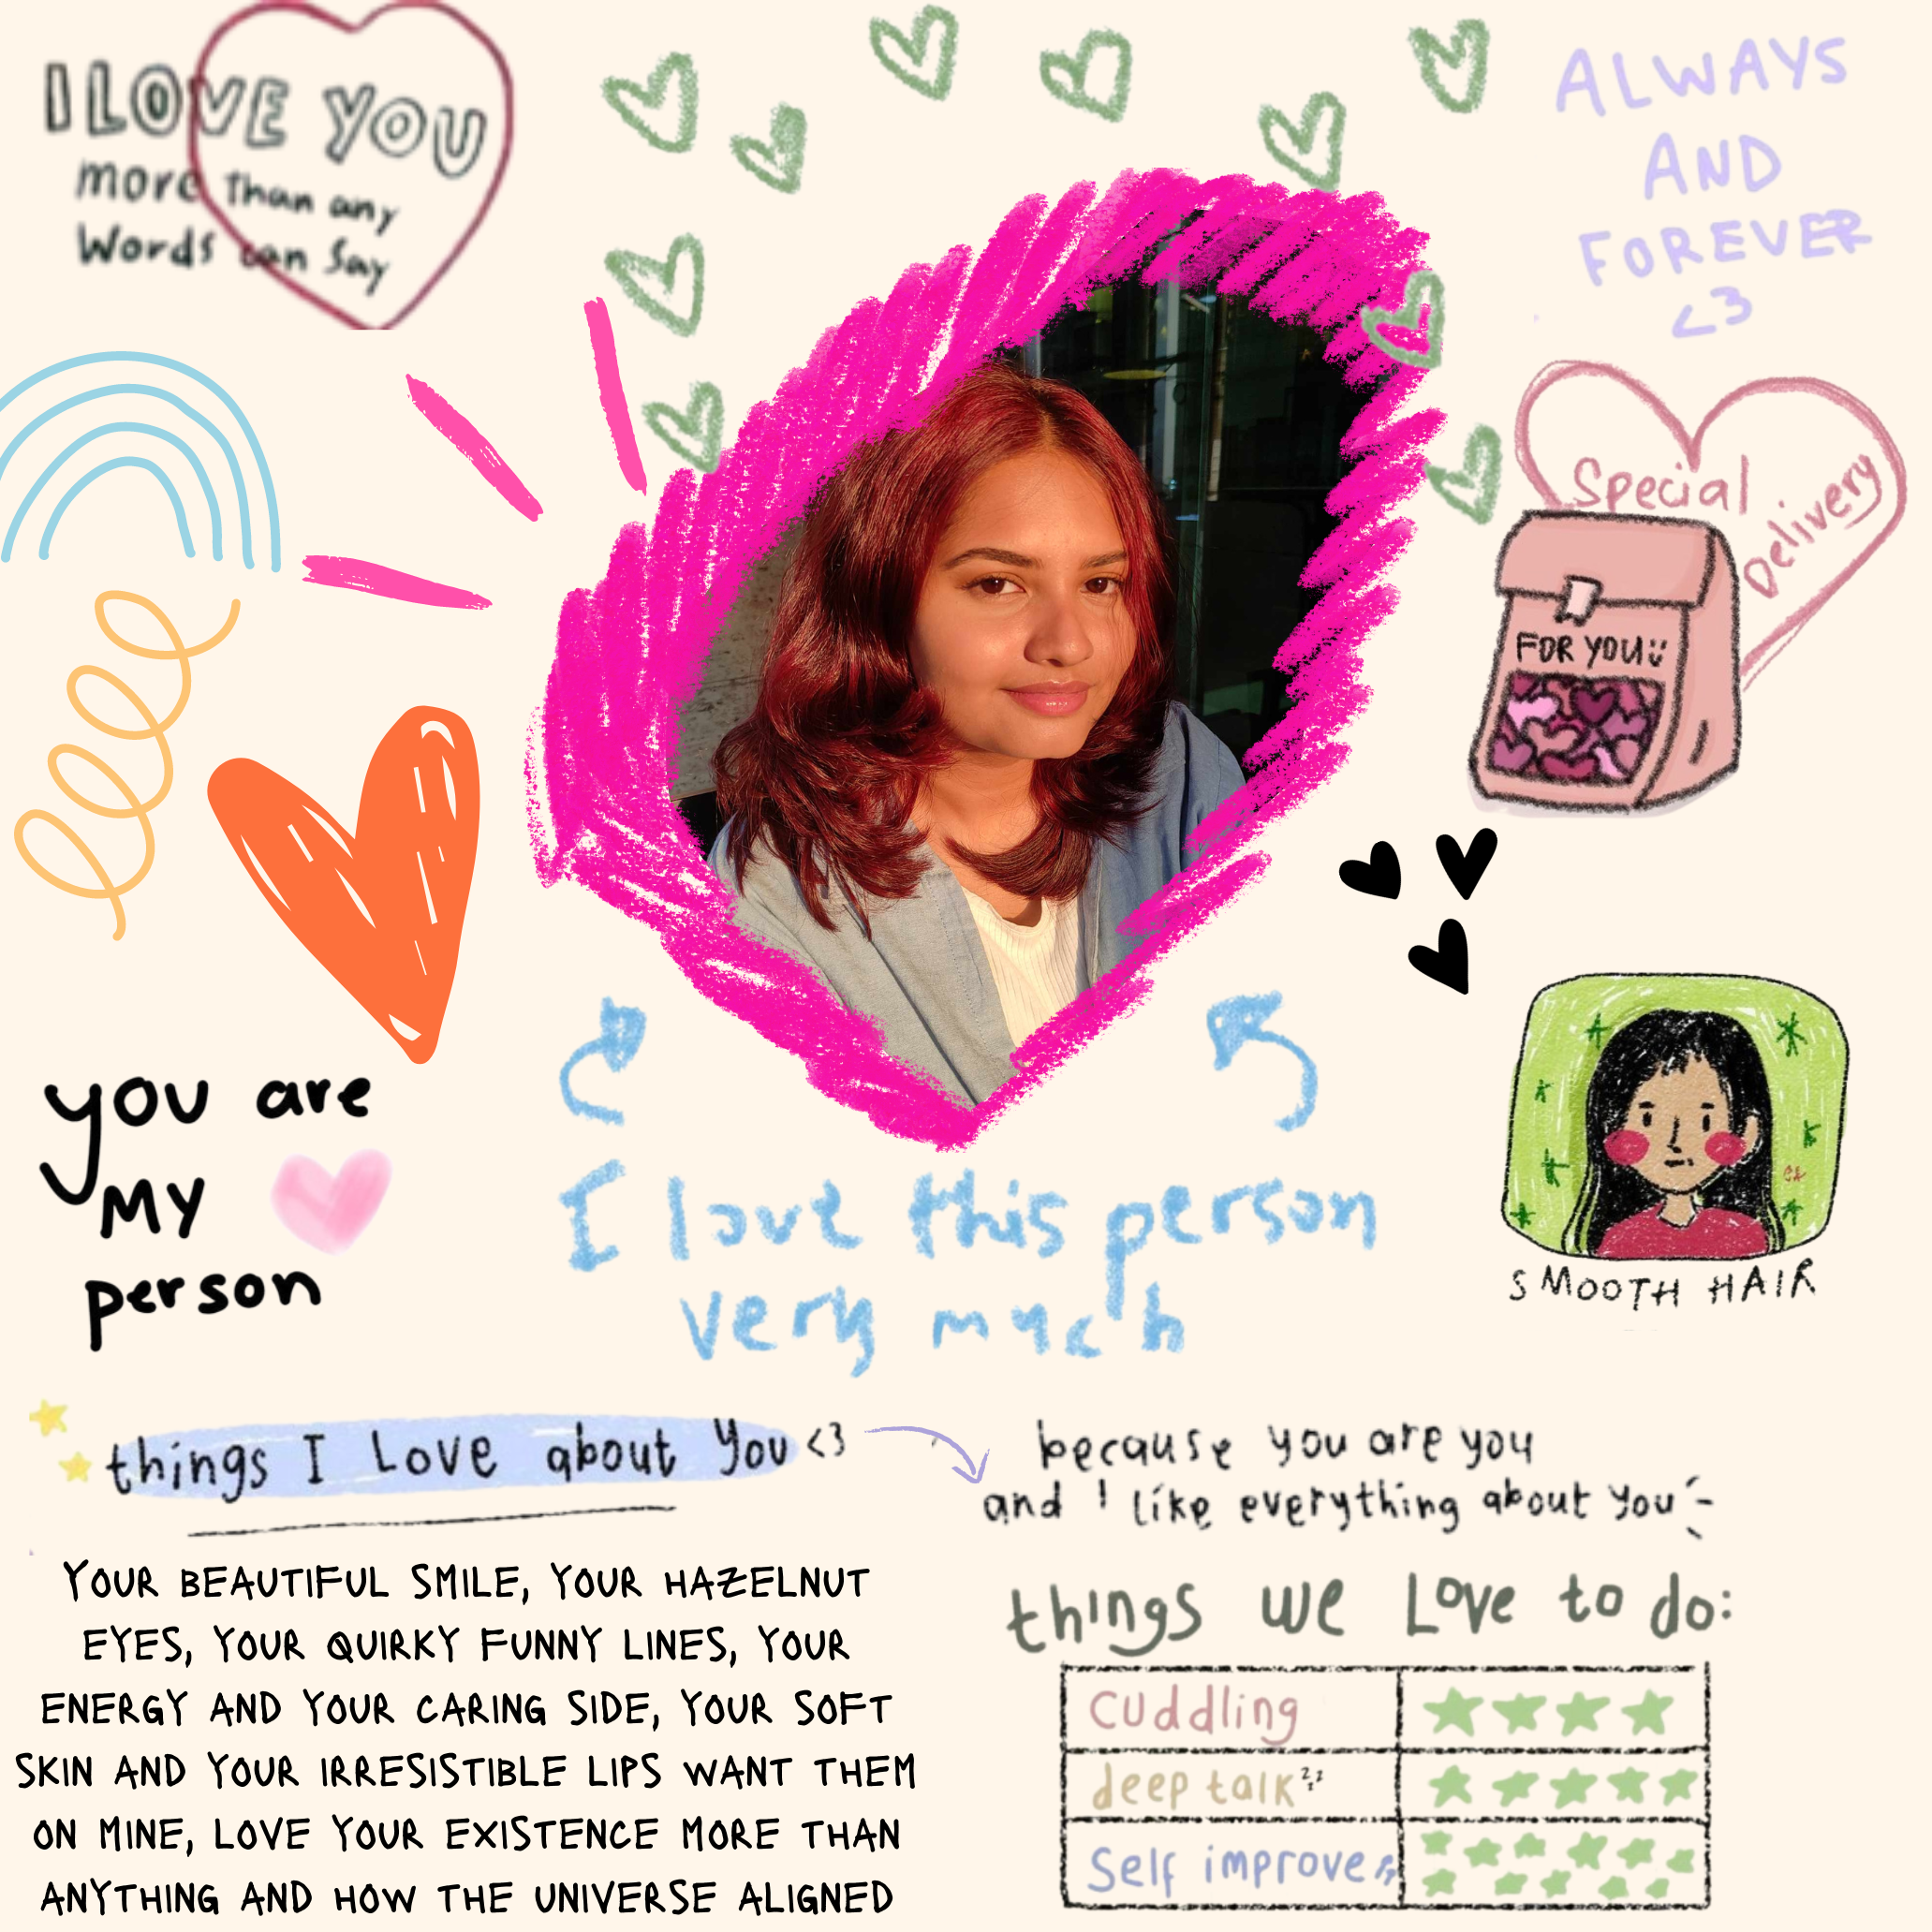 I LOVE YOU
more Than any
Words can Say
ALWAYS
AND
FOREVER
<3
Special
Delivery
FOR YOU
you are
MY
person
I love this person
very much
SMOOTH HAIR
things I Love about you <3
because you are you
and I like everything about you
YOUR BEAUTIFUL SMILE, YOUR HAZELNUT
EYES, YOUR QUIRKY FUNNY LINES, YOUR
ENERGY AND YOUR CARING SIDE, YOUR SOFT
SKIN AND YOUR IRRESISTIBLE LIPS WANT THEM
ON MINE, LOVE YOUR EXISTENCE MORE THAN
ANYTHING AND HOW THE UNIVERSE ALIGNED
things we Love to do:
cuddling
deep talk zzz
Self improve